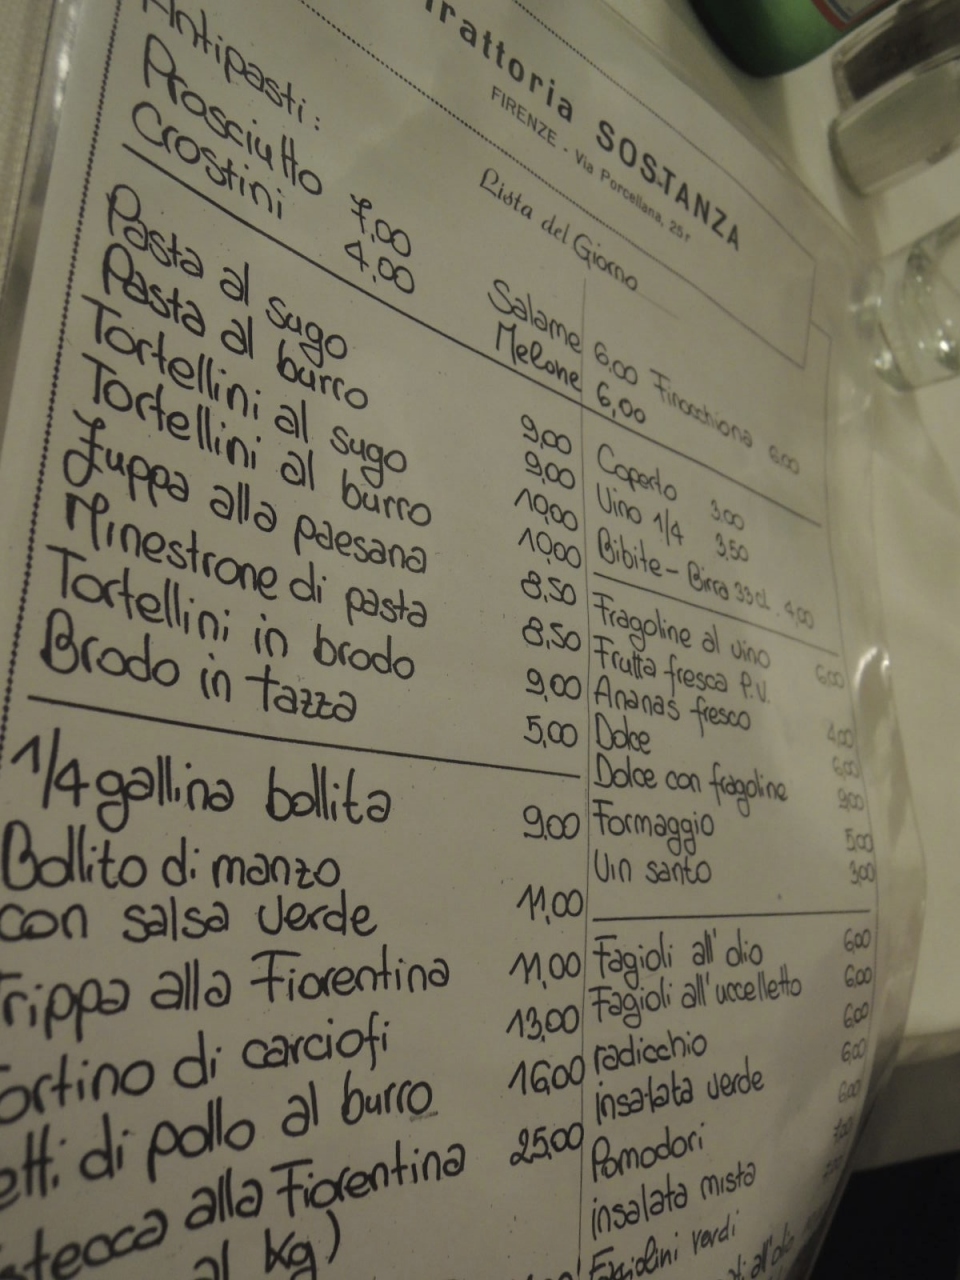 Trattoria SOSTANZA
FIRENZE - Via Porcellana, 25r
Lista del Giorno
Antipasti:
Prosciutto 7,00
Crostini 4,00
Salame 6,00 Finocchiona 6,00
Melone 6,00
Pasta al sugo 9,00
Pasta al burro 9,00
Tortellini al sugo 10,00
Tortellini al burro 10,00
Zuppa alla paesana 8,50
Minestrone di pasta 8,50
Tortellini in brodo 9,00
Brodo in tazza 5,00
1/4 gallina bollita 9,00
Bollito di manzo
con salsa verde 11,00
Trippa alla Fiorentina 11,00
Tortino di carciofi 13,00
etti di pollo al burro 16,00
stecca alla Fiorentina 25,00
al Kg)
Coperto 3,00
Vino 1/4 3,50
Bibite - Birra 33 cl. 4,00
Fragoline al vino 6,00
Frutta fresca P.V.
Ananas fresco 4,00
Dolce 6,00
Dolce con fragoline 9,00
Formaggio 5,00
Vin santo 3,00
Fagioli all'olio 6,00
Fagioli all'uccelletto 6,00
radicchio 6,00
insalata verde 6,00
Pomodori 6,00
insalata mista
Fagiolini verdi
all'olio